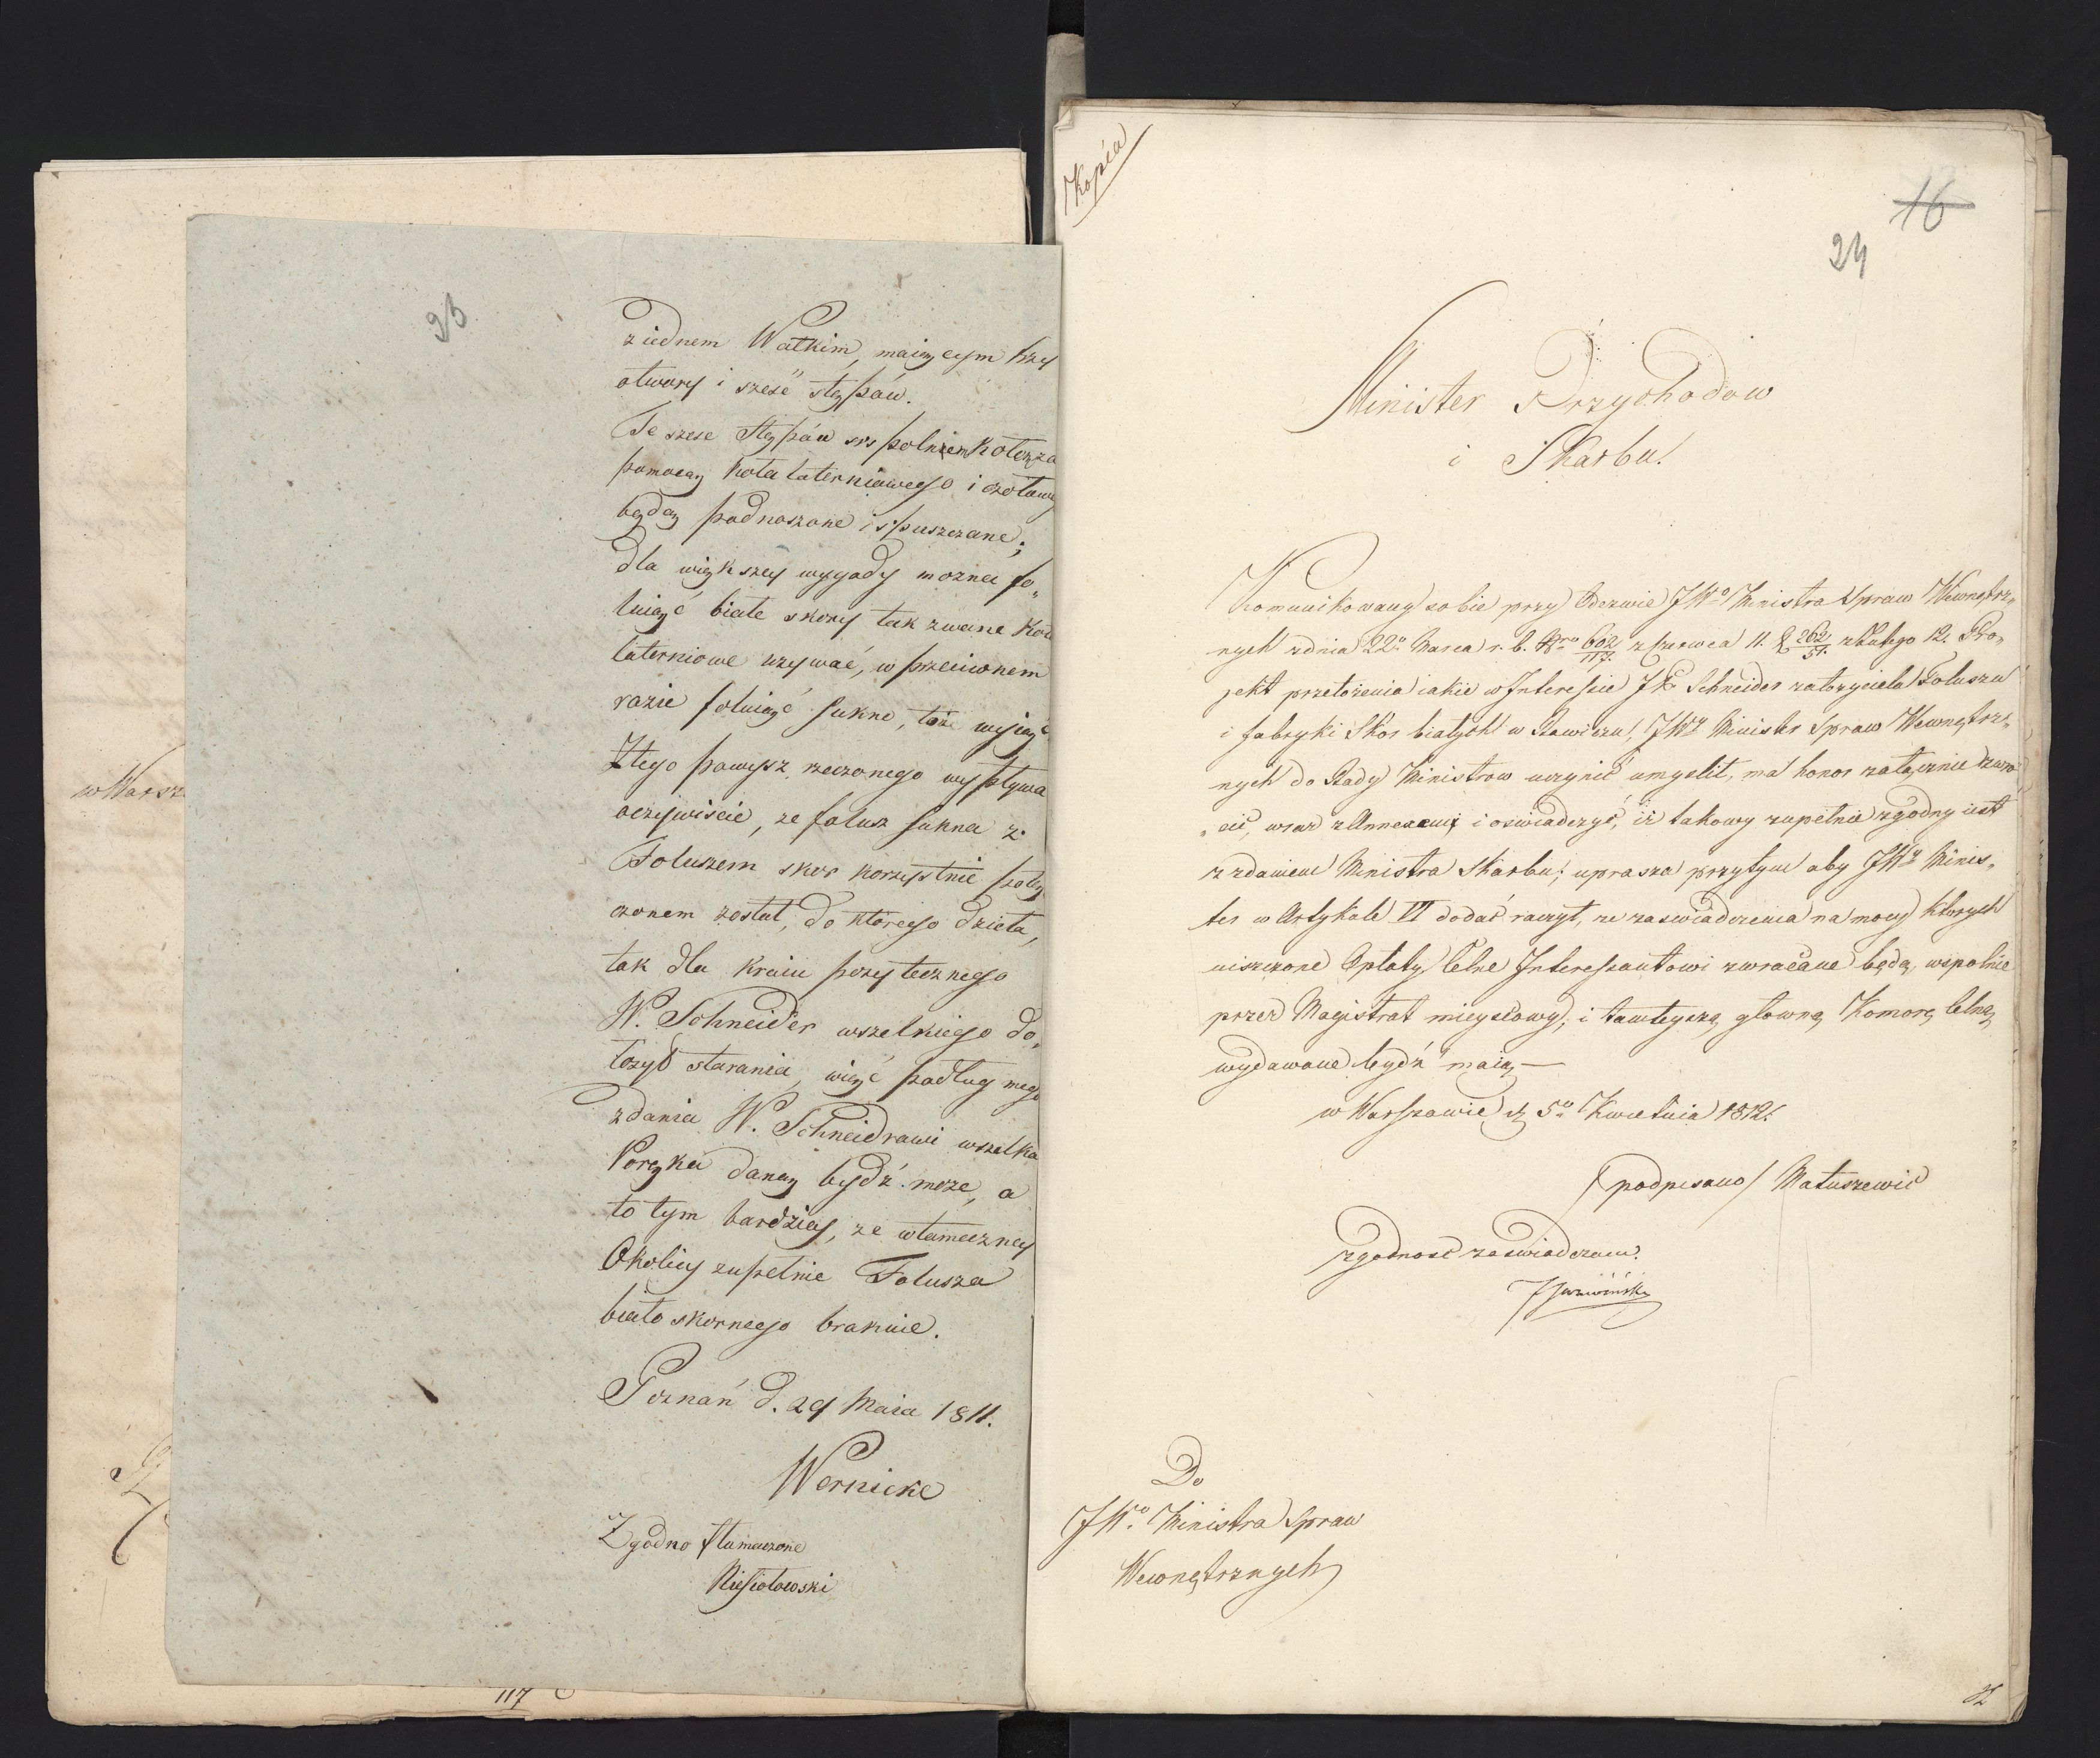 23
z iednem Wałkim, maiącym trzy
otwory i sześć stępów.
Te szesc stępów wspolniem kotem za
pomocą koła laterniowego i czołowe
będą podnoszone i spuszczane;
dla większey wygody mozna fo„
luiąć białe skory tak zwane koło
laterniowe uzywać, w przeciwnem
razie foluiąć sukno, toż wyjąć.
Z tego powysz rzeczonego wypływa
oczywiscie, ze folusz sukna z
Foluszem skor korzystnie połą
czonem został, do którego dzieła,
tak dla kraiu pozytecznego
W. Schneider wszelkiego do„
łozył starania, więć podług mego
zdania W. Schneidrowi wszelka
Poręka daną bydź moze, a
to tym bardziey, ze w tameczney
Okolicy zupełnie Folusza
białoskornego braknie.
Poznań d. 29 Maia 1811.
Wernicke
Zgodno tłumaczone
Niesiołowski
w Warsz
117
Kopia
16
24
Minister Przychodow
i Skarbu.
Komunikowany sobie przy Odezwie JWo Ministra Spraw Wewnętrz„
nych z dnia 22o Marca r. b. Nro 602/117. z Czerwca 11. & 262/51. z Lutego 12. Pro„
jekt przełożenia iakie w Interessie JP Schneider założyciela Foluszu
i fabryki Skor białych w Rawiczu, JWy Minister Spraw Wewnętrz„
nych do Rady Ministrow uczynić umyslił, ma honor załącznie zwro
„cić, wraz z Annexami i oswiadczyć, iż takowy zupełnie zgodny iest
z zdaniem Ministra Skarbu; uprasza przytym aby JWy Minis„
ter w Artykule VI dodać raczył, ze zaswiadczenia na mocy ktorych
uiszczone Opłaty Celne Interessantowi zwracane będą, wspolnie
przez Magistrat mieyscowy, i tamteyszą głowną Komorę Celną
wydawane bydź maią —
w Warszawie d. 5o Kwietnia 1812.
/podpisano/ Matuszewic
zgodność zaswiadczam.
Do
JWo Ministra Spraw
Wewnętrznych